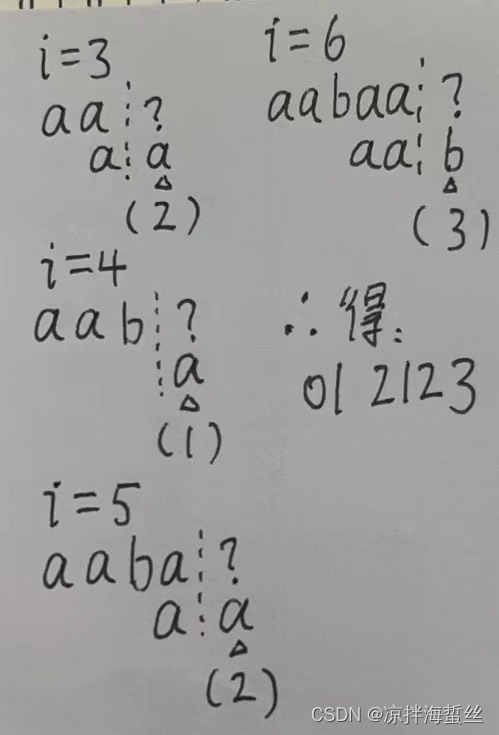 i=3
aa¦?
a¦a
△
(2)
i=4
aab¦?
¦a
△
(1)
i=5
aaba¦?
a¦a
△
(2)
i=6
aabaa¦?
aa¦b
△
(3)
∴得:
012123
CSDN @凉拌海蜇丝